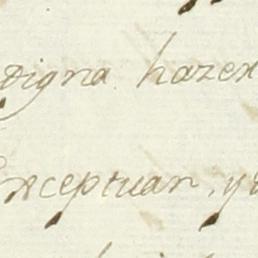 digna hazer
Exceptuan, y